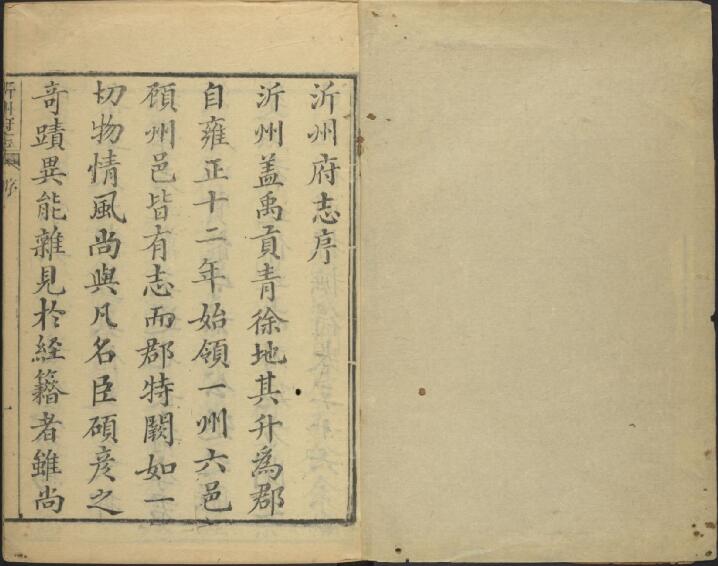 沂州府志序
沂州盖禹貢青徐地其升為郡
自雍正十二年始領一州六邑
顧州邑皆有志而郡特闕如一
切物情風尚與凡名臣碩彦之
奇蹟異能雜見於経籍者雖尚
沂州府志
序
一